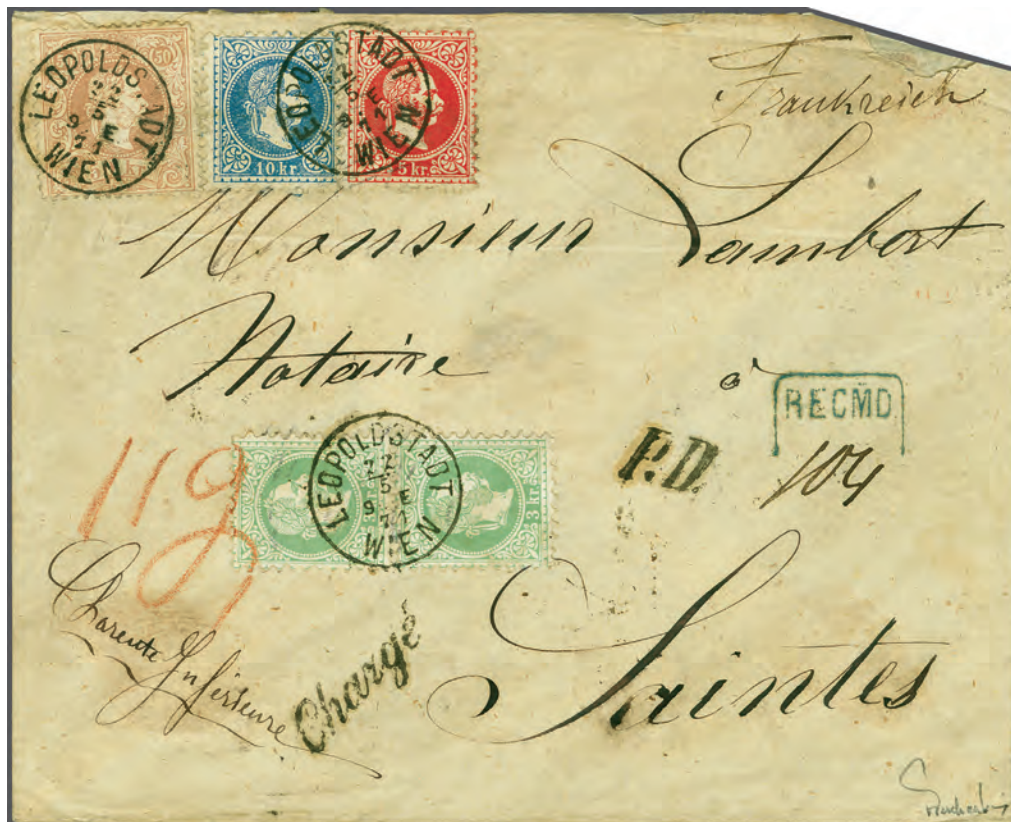 LEOPOLDSTADT
22
5 E
9 71
WIEN
50
LEOPOLDSTADT
22
5 E
9 71
WIEN
10 kr.
5 kr.
Frankreich
Monsieur Lambert
Notaire à
RECMD
104
P.D.
LEOPOLDSTADT
22
5 E
9 71
WIEN
3 kr.
3 kr.
Charente Inférieure
Chargé
Saintes